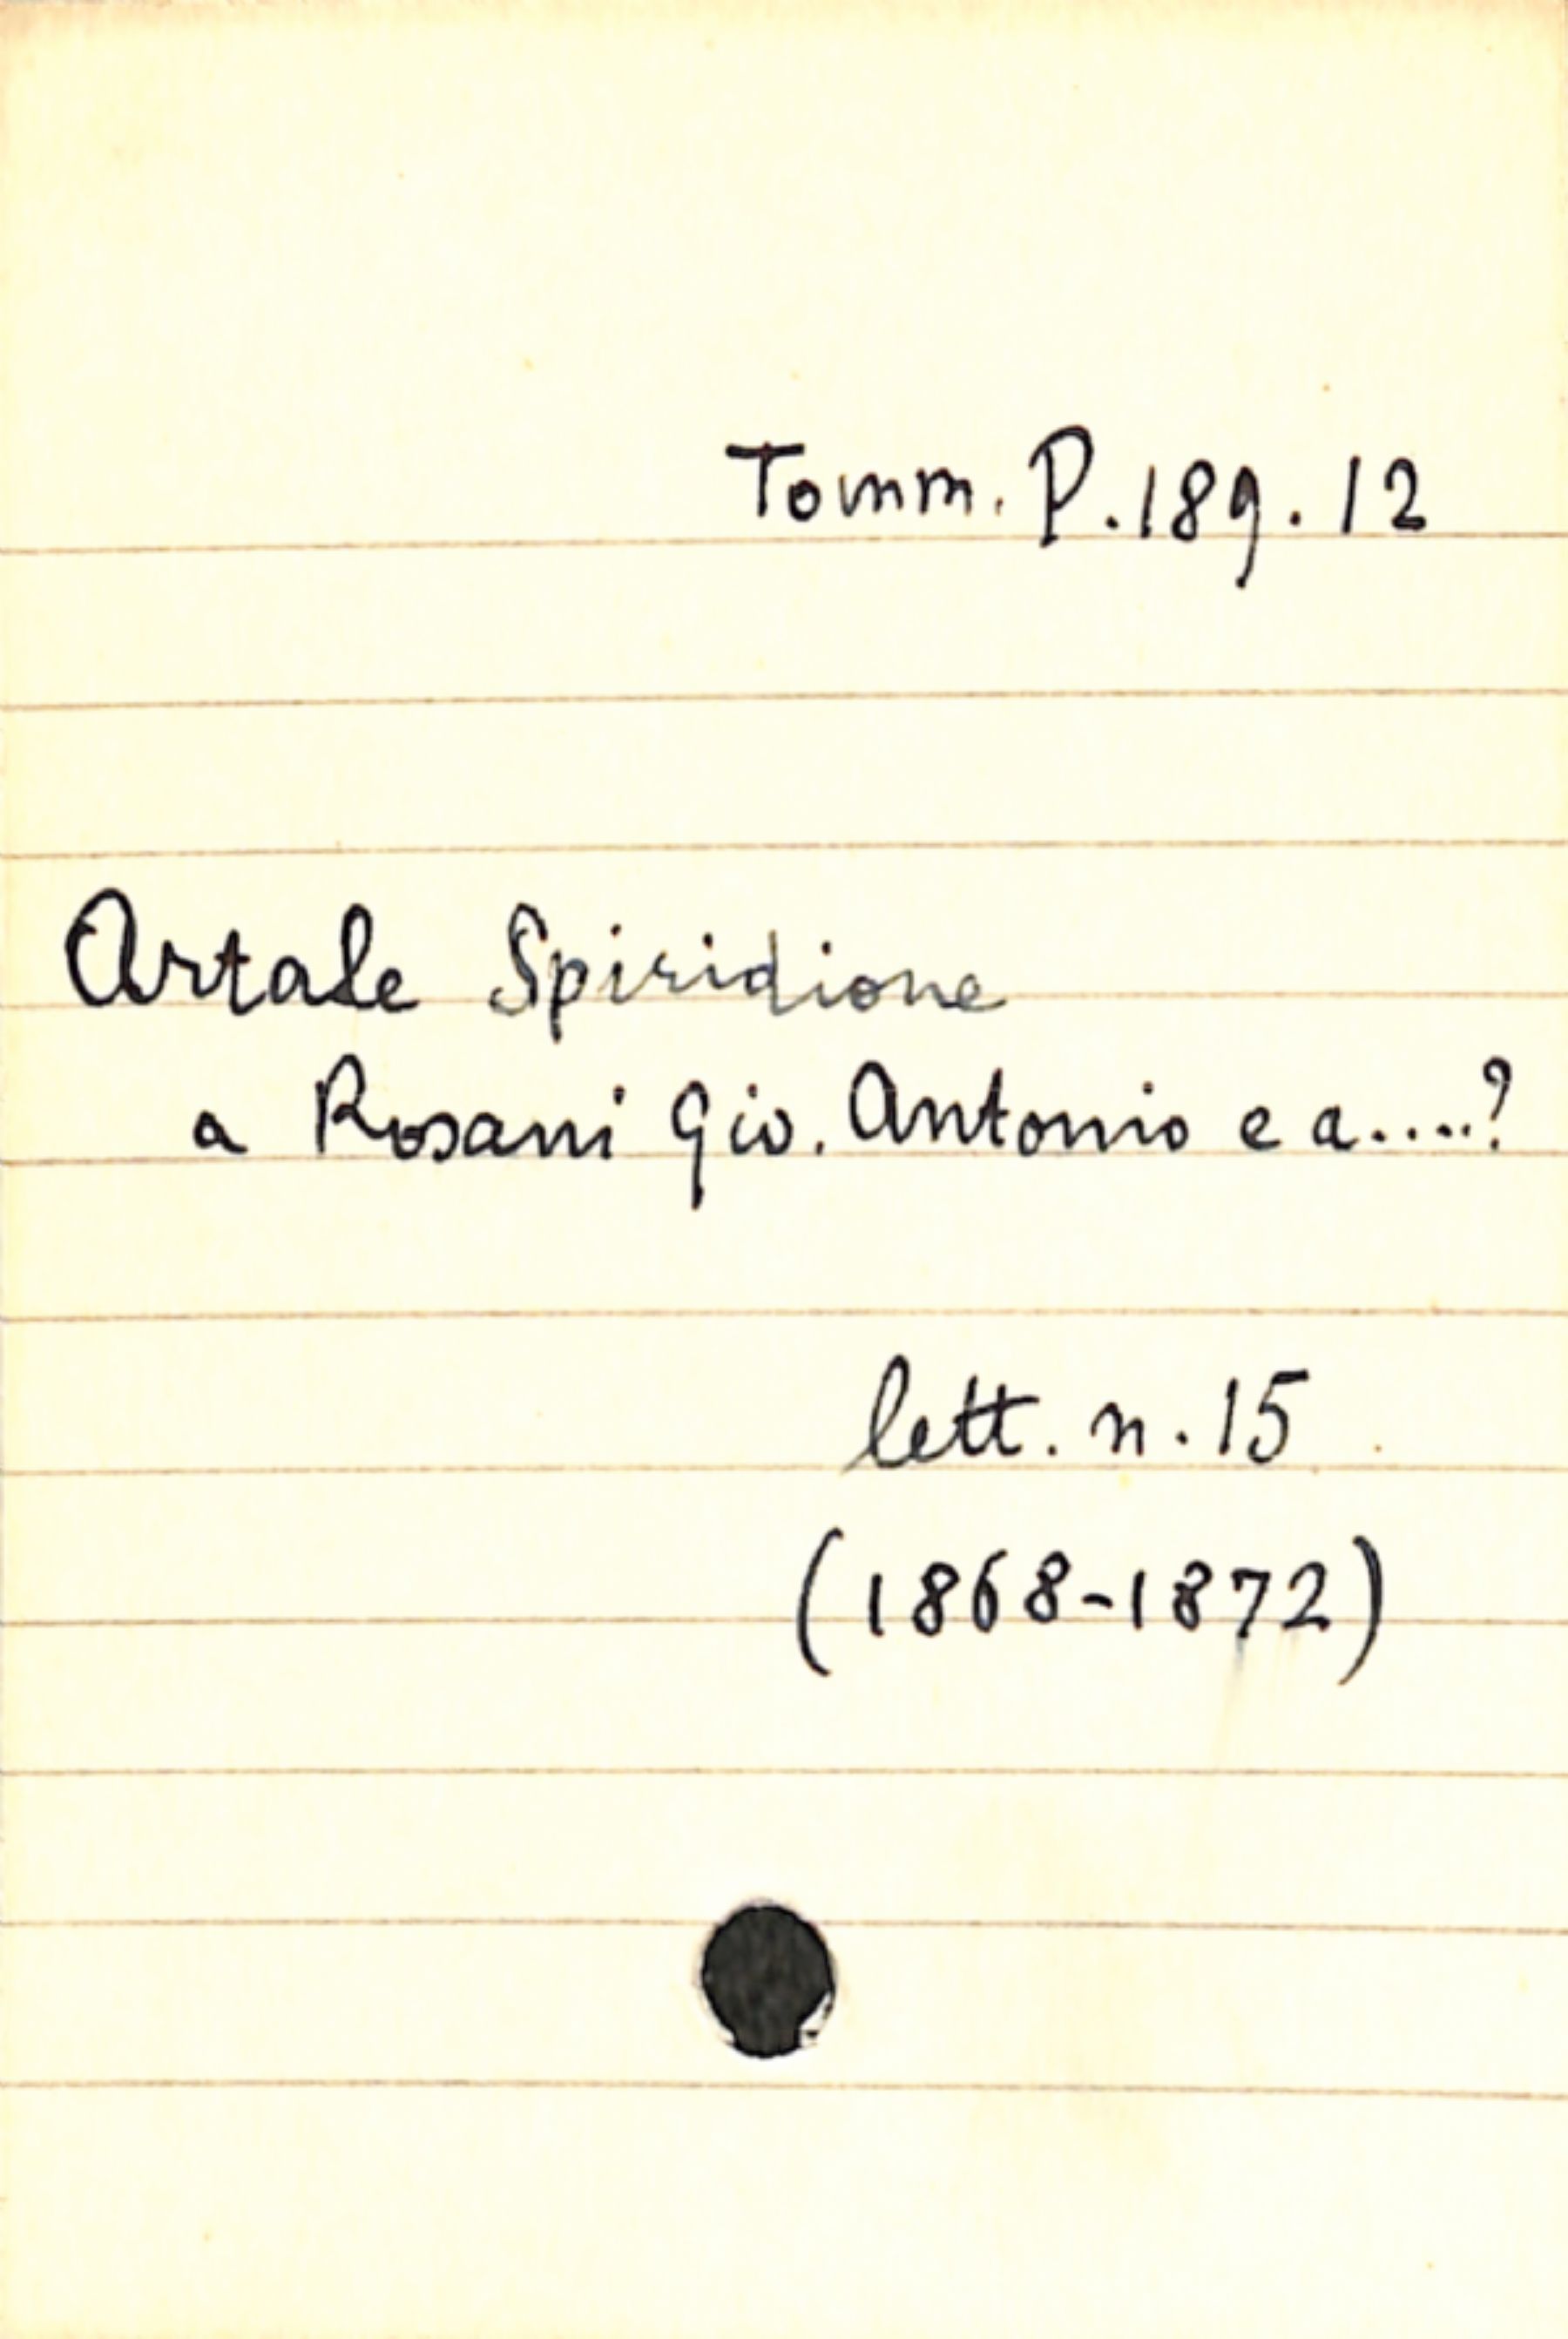 Tomm. P. 189. 12
Artale Spiridione
a Rosani Gio. Antonio e a.....?
lett. n. 15
(1868-1872)